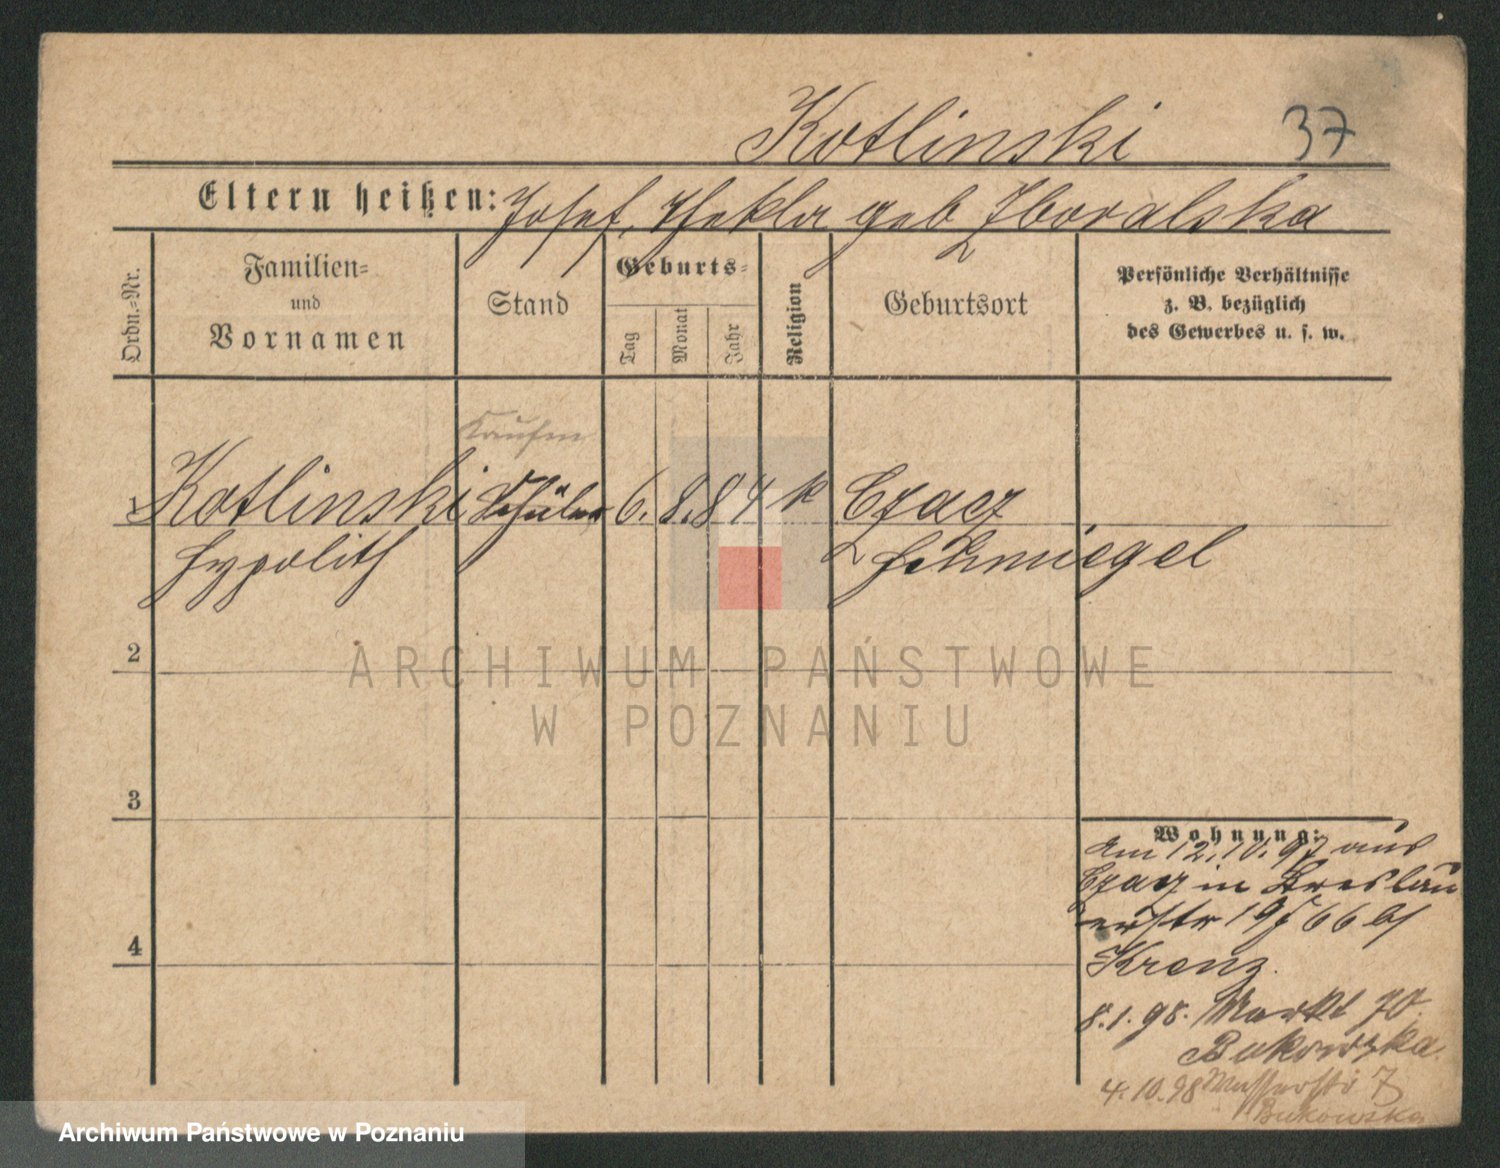 Kotlinski 37
Eltern heißen: Josef, Thekla geb Zboralska
Ordn.-Nr.
Familien-
und
Vornamen
Stand
Geburts-
Tag
Monat
Jahr
Religion
Geburtsort
Persönliche Verhältnisse
z. B. bezüglich
des Gewerbes u. s. w.
1 Kotlinski Schüler 6. 8. 84 k Czacz
Hypolith Schmiegel
2
ARCHIWUM PAŃSTWOWE
W POZNANIU
3
Wohnung:
am 12.10.97 aus
Czacz in Breslau
erstr 19
Krenz.
4
8.1.98. Markt 70.
Bukowska.
4.10.98 7
Bukowska
Archiwum Państwowe w Poznaniu